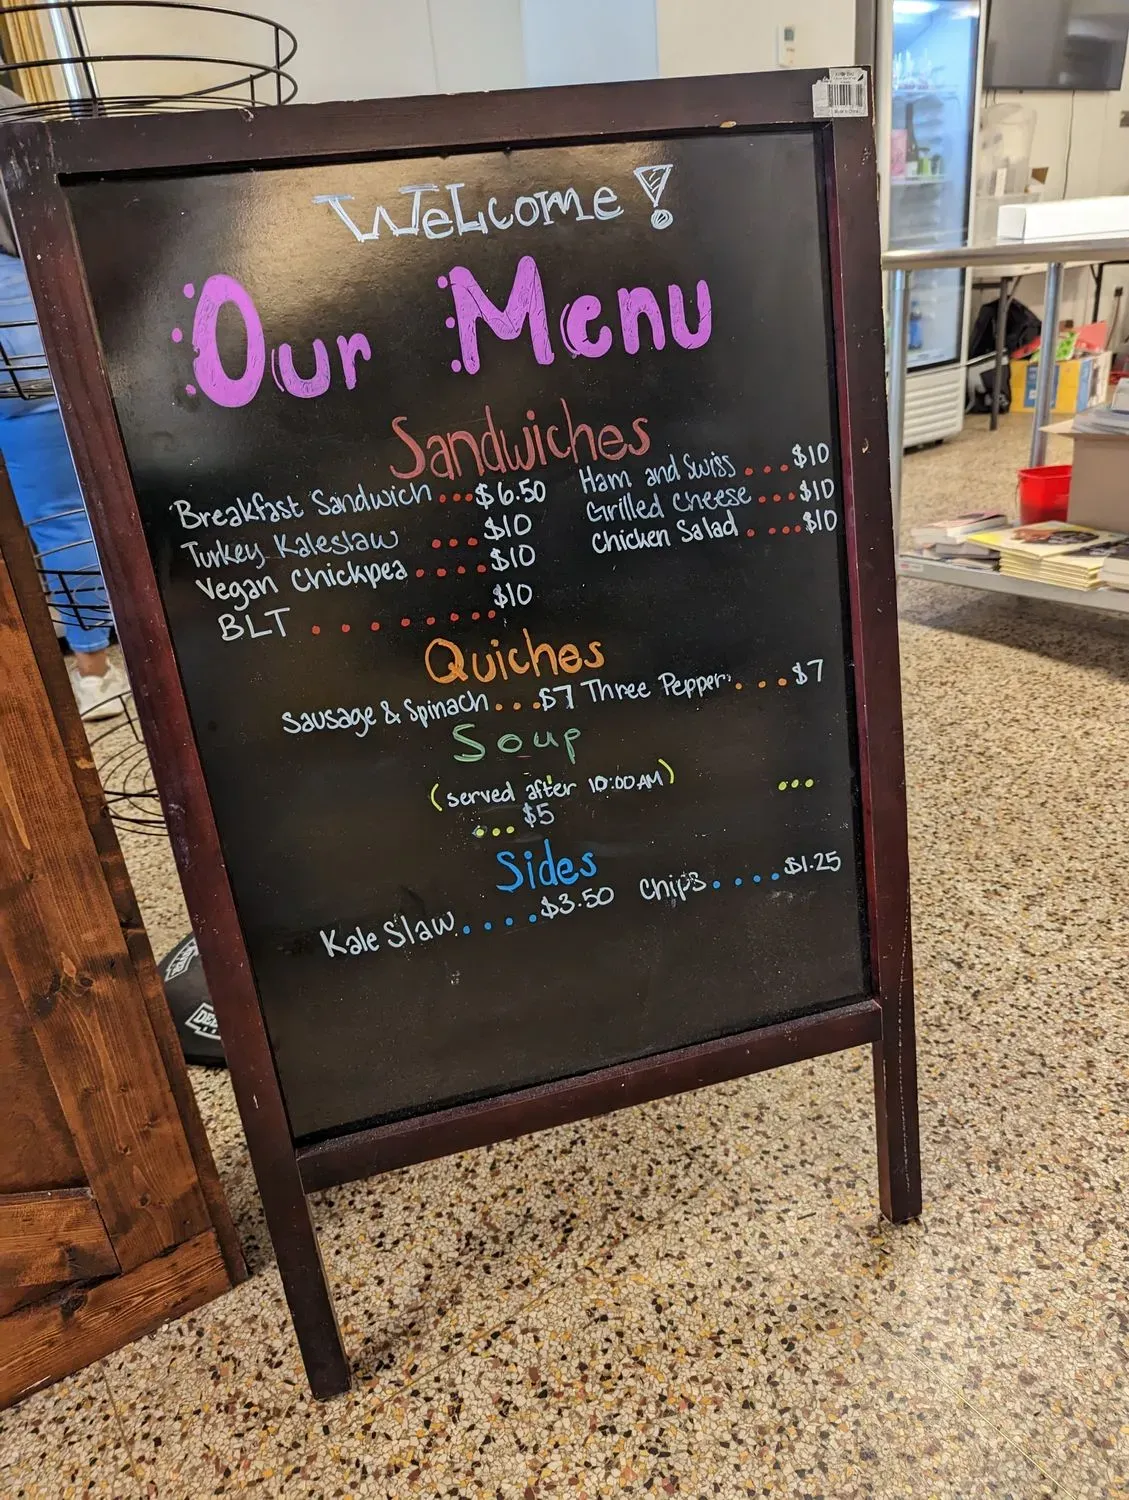 WELCOME!
Our Menu
Sandwiches
Breakfast Sandwich...$6.50
Turkey Kaleslaw ...$10
Vegan Chickpea.....$10
BLT ........$10
Ham and Swiss ...$10
Grilled Cheese ...$10
Chicken Salad.....$10
Quiches
Sausage & Spinach ...$7 Three Pepper. ...$7
Soup
(served after 10:00AM)
...$5 ...
Sides
Kale Slaw....$3.50 Chips....$1.25